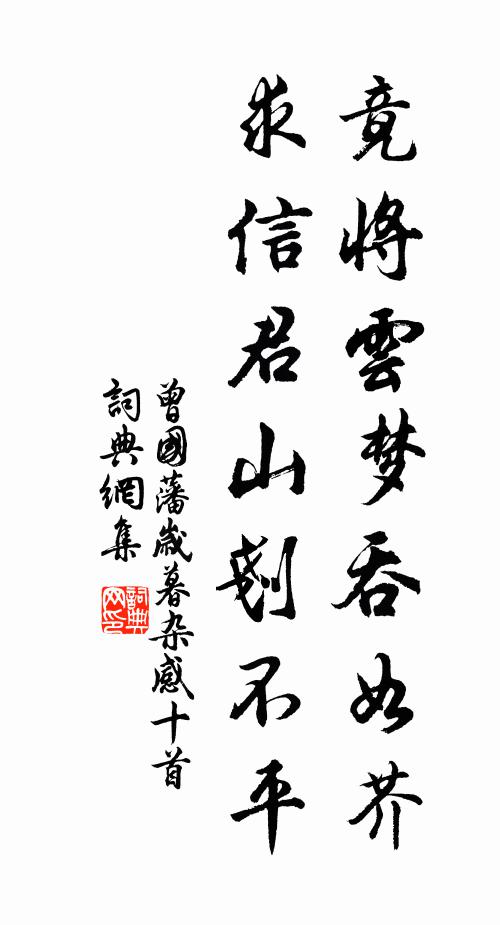 竟將雲梦吞如芥
求信君山刬不平
曾國藩歲暮杂感十首
詞典網集
詞典
网印